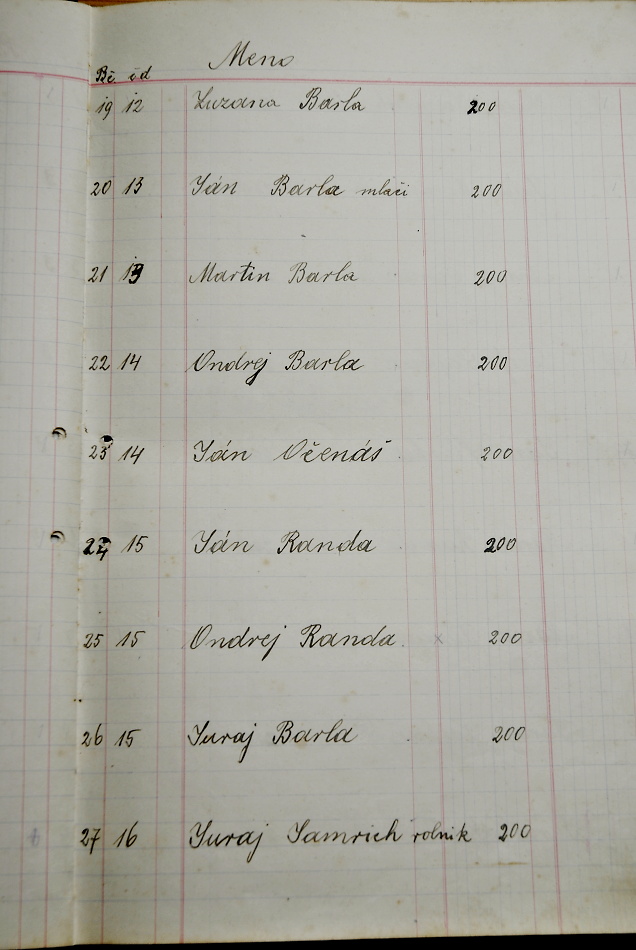 Meno
Bč. čd
19 12 Zuzana Barla 200
20 13 Ján Barla mlači 200
21 13 Martin Barla 200
22 14 Ondrej Barla 200
23 14 Ján Očenáš 200
24 15 Ján Randa 200
25 15 Ondrej Randa 200
26 15 Juraj Barla 200
27 16 Juraj Samrich rolnik 200